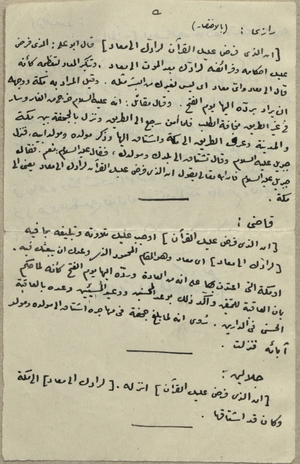 ٥
رازى : (بالاختصار)
[ان الذى فرض عليك القرآن لرادك الى معاد] قال ابو على : الذى فرض
عليك احكامه وفرائضه لرادك بعد الموت الى معاد . وتنكير المعاد لتعظيمه كأنه
قال الى معاد واى معاد اى ليس لغيرك من البشر مثله . وقيل المراد به مكة ووجهه
ان يراد برده اليها يوم الفتح . وقال مقاتل : انه عليه السلام خرج من الغار وسار
فى غير الطريق مخافة الطلب فلما أمن رجع الى الطريق ونزل بالجحفة بين مكة
والمدينة وعرف الطريق الى مكة واشتاق اليها وذكر مولده ومولد ابيه ، فنزل
جبريل عليه السلام وقال تشتاق الى بلدك ومولدك ؟ فقال عليه السلام نعم . فقال
جبريل عليه السلام فان الله تعالى يقول ان الذى فرض عليك القرآن لرادك الى معاد يعنى الى
مكة .
قاضى :
[ان الذى فرض عليك القرآن] اوجب عليك تلاوته وتبليغه بما فيه
[لرادك الى معاد] اى معاد وهو المقام المحمود الذى وعدك ان يبعثك فيه .
او مكة التى اعتدت بها على انه من العادة ورده اليها يوم الفتح كأنه لما حكم
بأن العاقبة للمتقين وأكد ذلك بوعد المحسنين ووعيد المسيئين وعده بالعاقبة
الحسنى فى الدارين . روى انه لما بلغ جحفة فى مهاجره اشتاق الى مولده ومولد
آبائه فنزلت .
جلالين :
[ان الذى فرض عليك القرآن] انزله . [لرادك الى معاد] الى مكة
وكان قد اشتاقها .